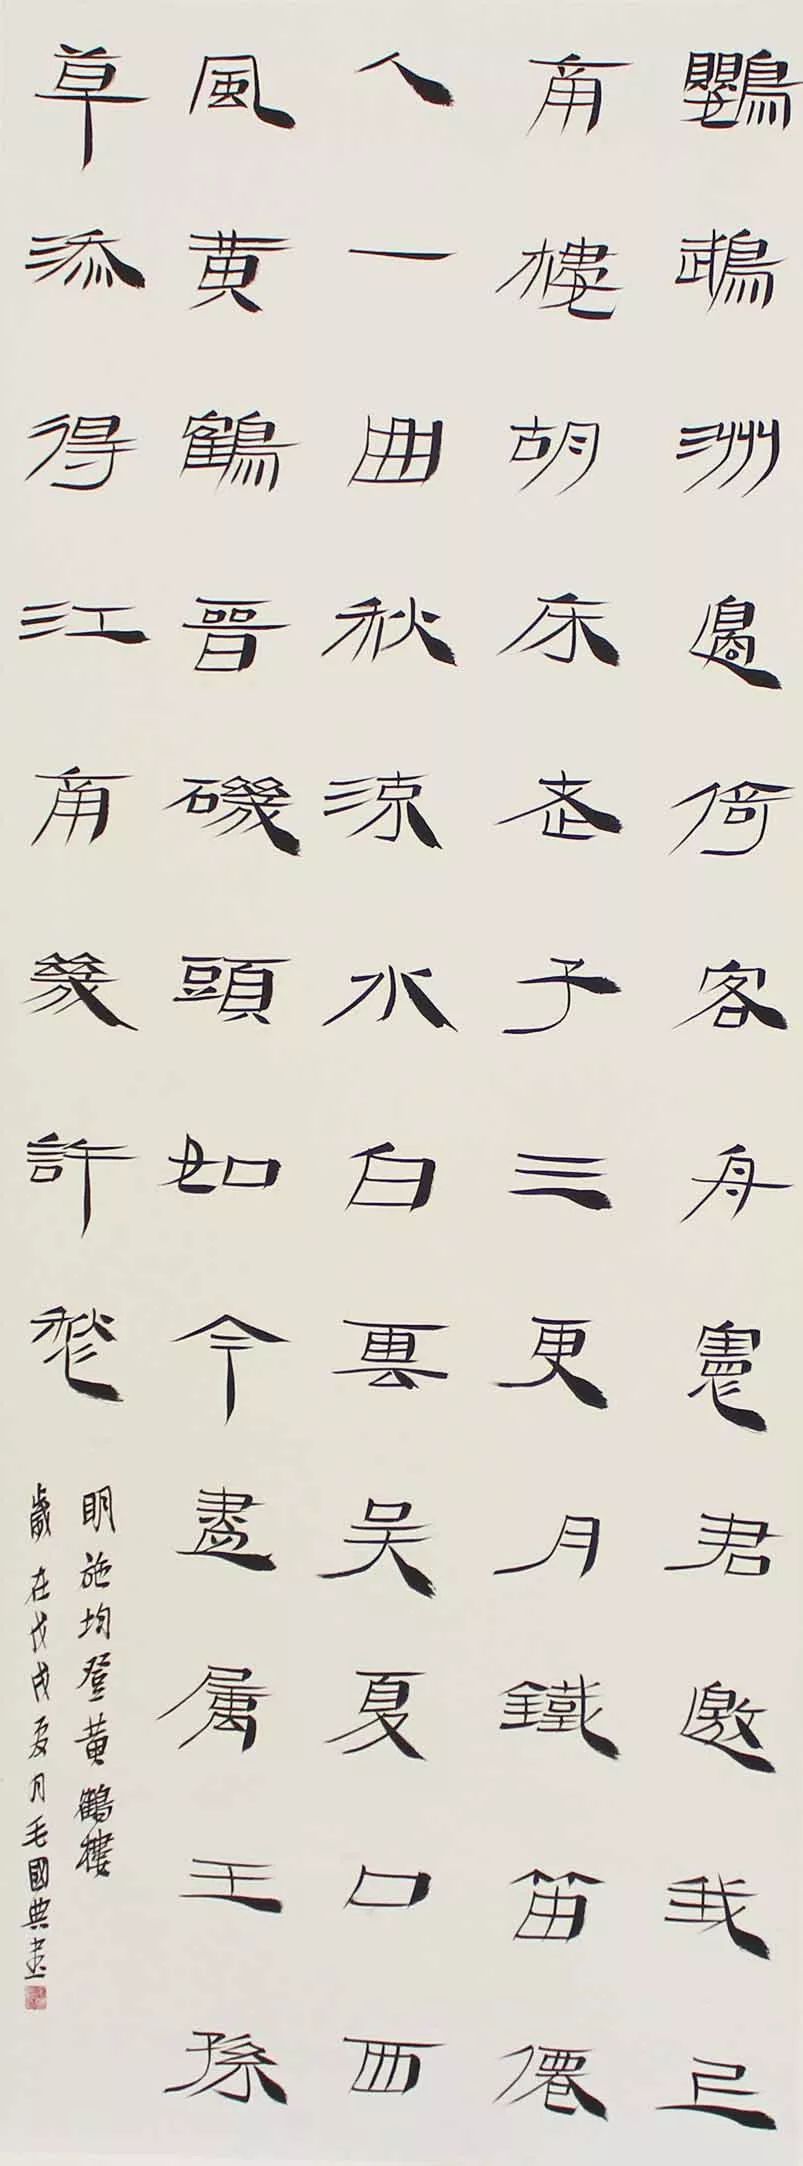 鸚鵡洲邊倚客舟憲君邀我上
南樓胡床老子三更月鐵笛僊
人一曲秋涼水白雲吳夏口西
風黃鶴晉磯頭如今盡屬王孫
草添得江南幾許愁
明施均登黃鶴樓
歲在戊戌夏月毛國典書